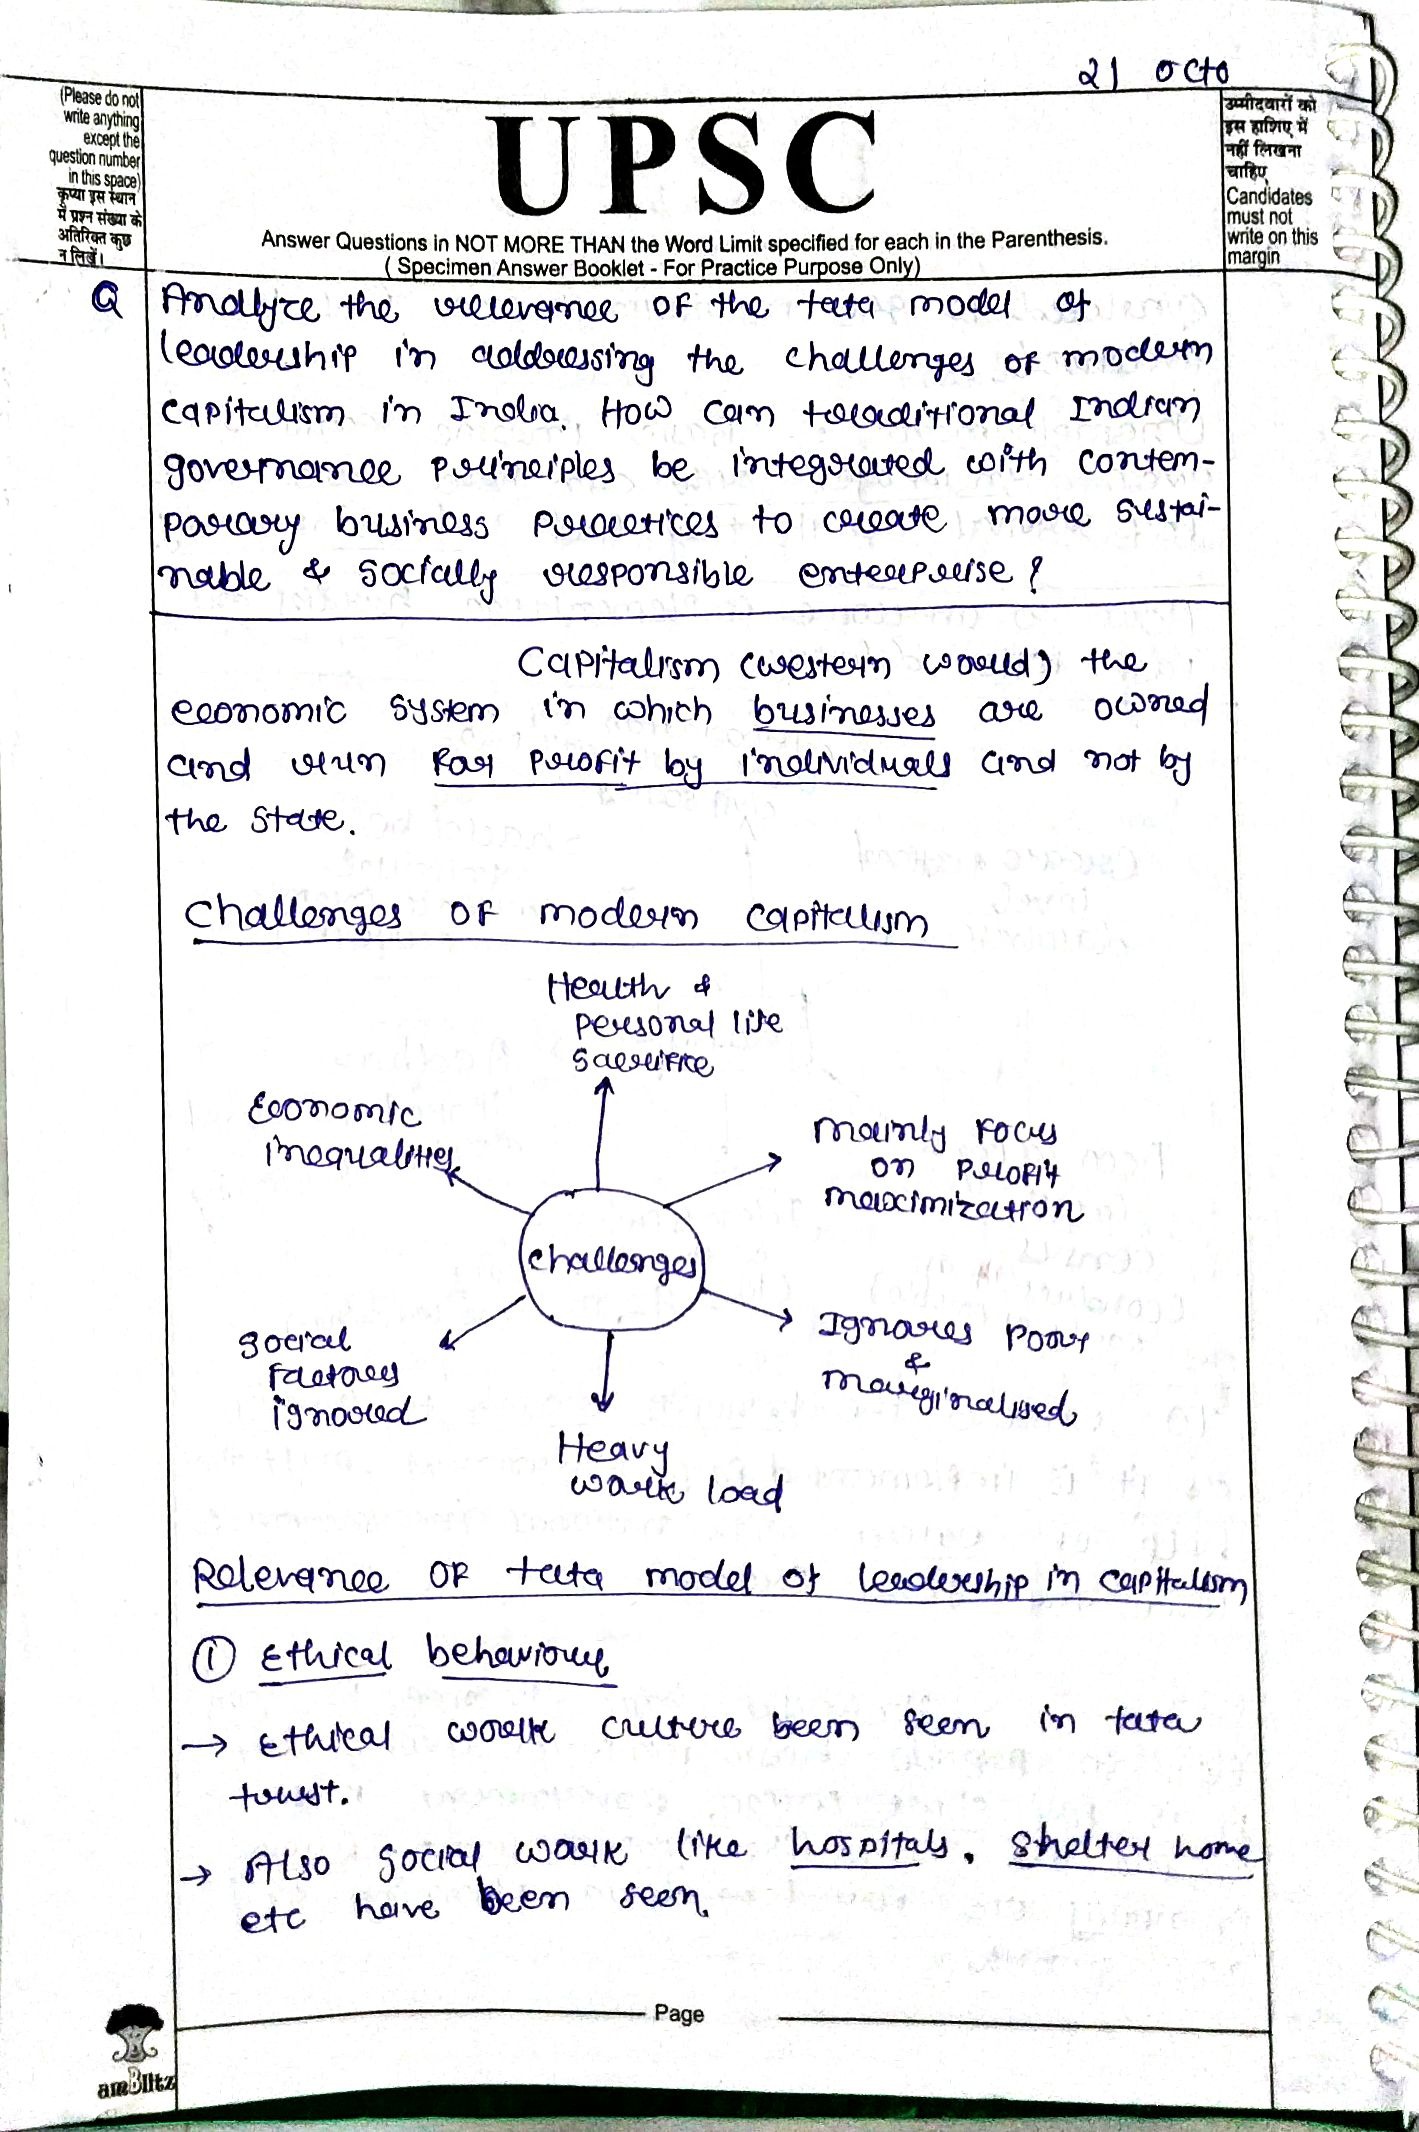 21 Octo
(Please do not
write anything
except the
question number
in this space)
कृप्या इस स्थान
में प्रश्न संख्या के
अतिरिक्त कुछ
न लिखें।
UPSC
Answer Questions in NOT MORE THAN the Word Limit specified for each in the Parenthesis.
( Specimen Answer Booklet - For Practice Purpose Only)
उम्मीदवारों को
इस हाशिए में
नहीं लिखना
चाहिए
Candidates
must not
write on this
margin
Q Analyze the relevance of the tata model of
leadership in addressing the challenges of modern
capitalism in India. How can traditional Indian
governance principles be integrated with contem-
porary business practices to create more sustai-
nable & socially responsible enterprise?
Capitalism (western world) the
economic system in which businesses are owned
and run for profit by individuals and not by
the state.
Challenges of modern capitalism
Health &
personal life
sacrifice
Economic
inequalities
mainly focus
on profit
maximization
challenges
Social
factores
ignored
Ignores poor
&
marginalised
Heavy
work load
Relevance of tata model of leadership in capitalism
① Ethical behaviour
→ Ethical work culture been seen in tata
trust.
→ Also social work like hospitals, shelter home
etc have been seen.
Page
amBlitz